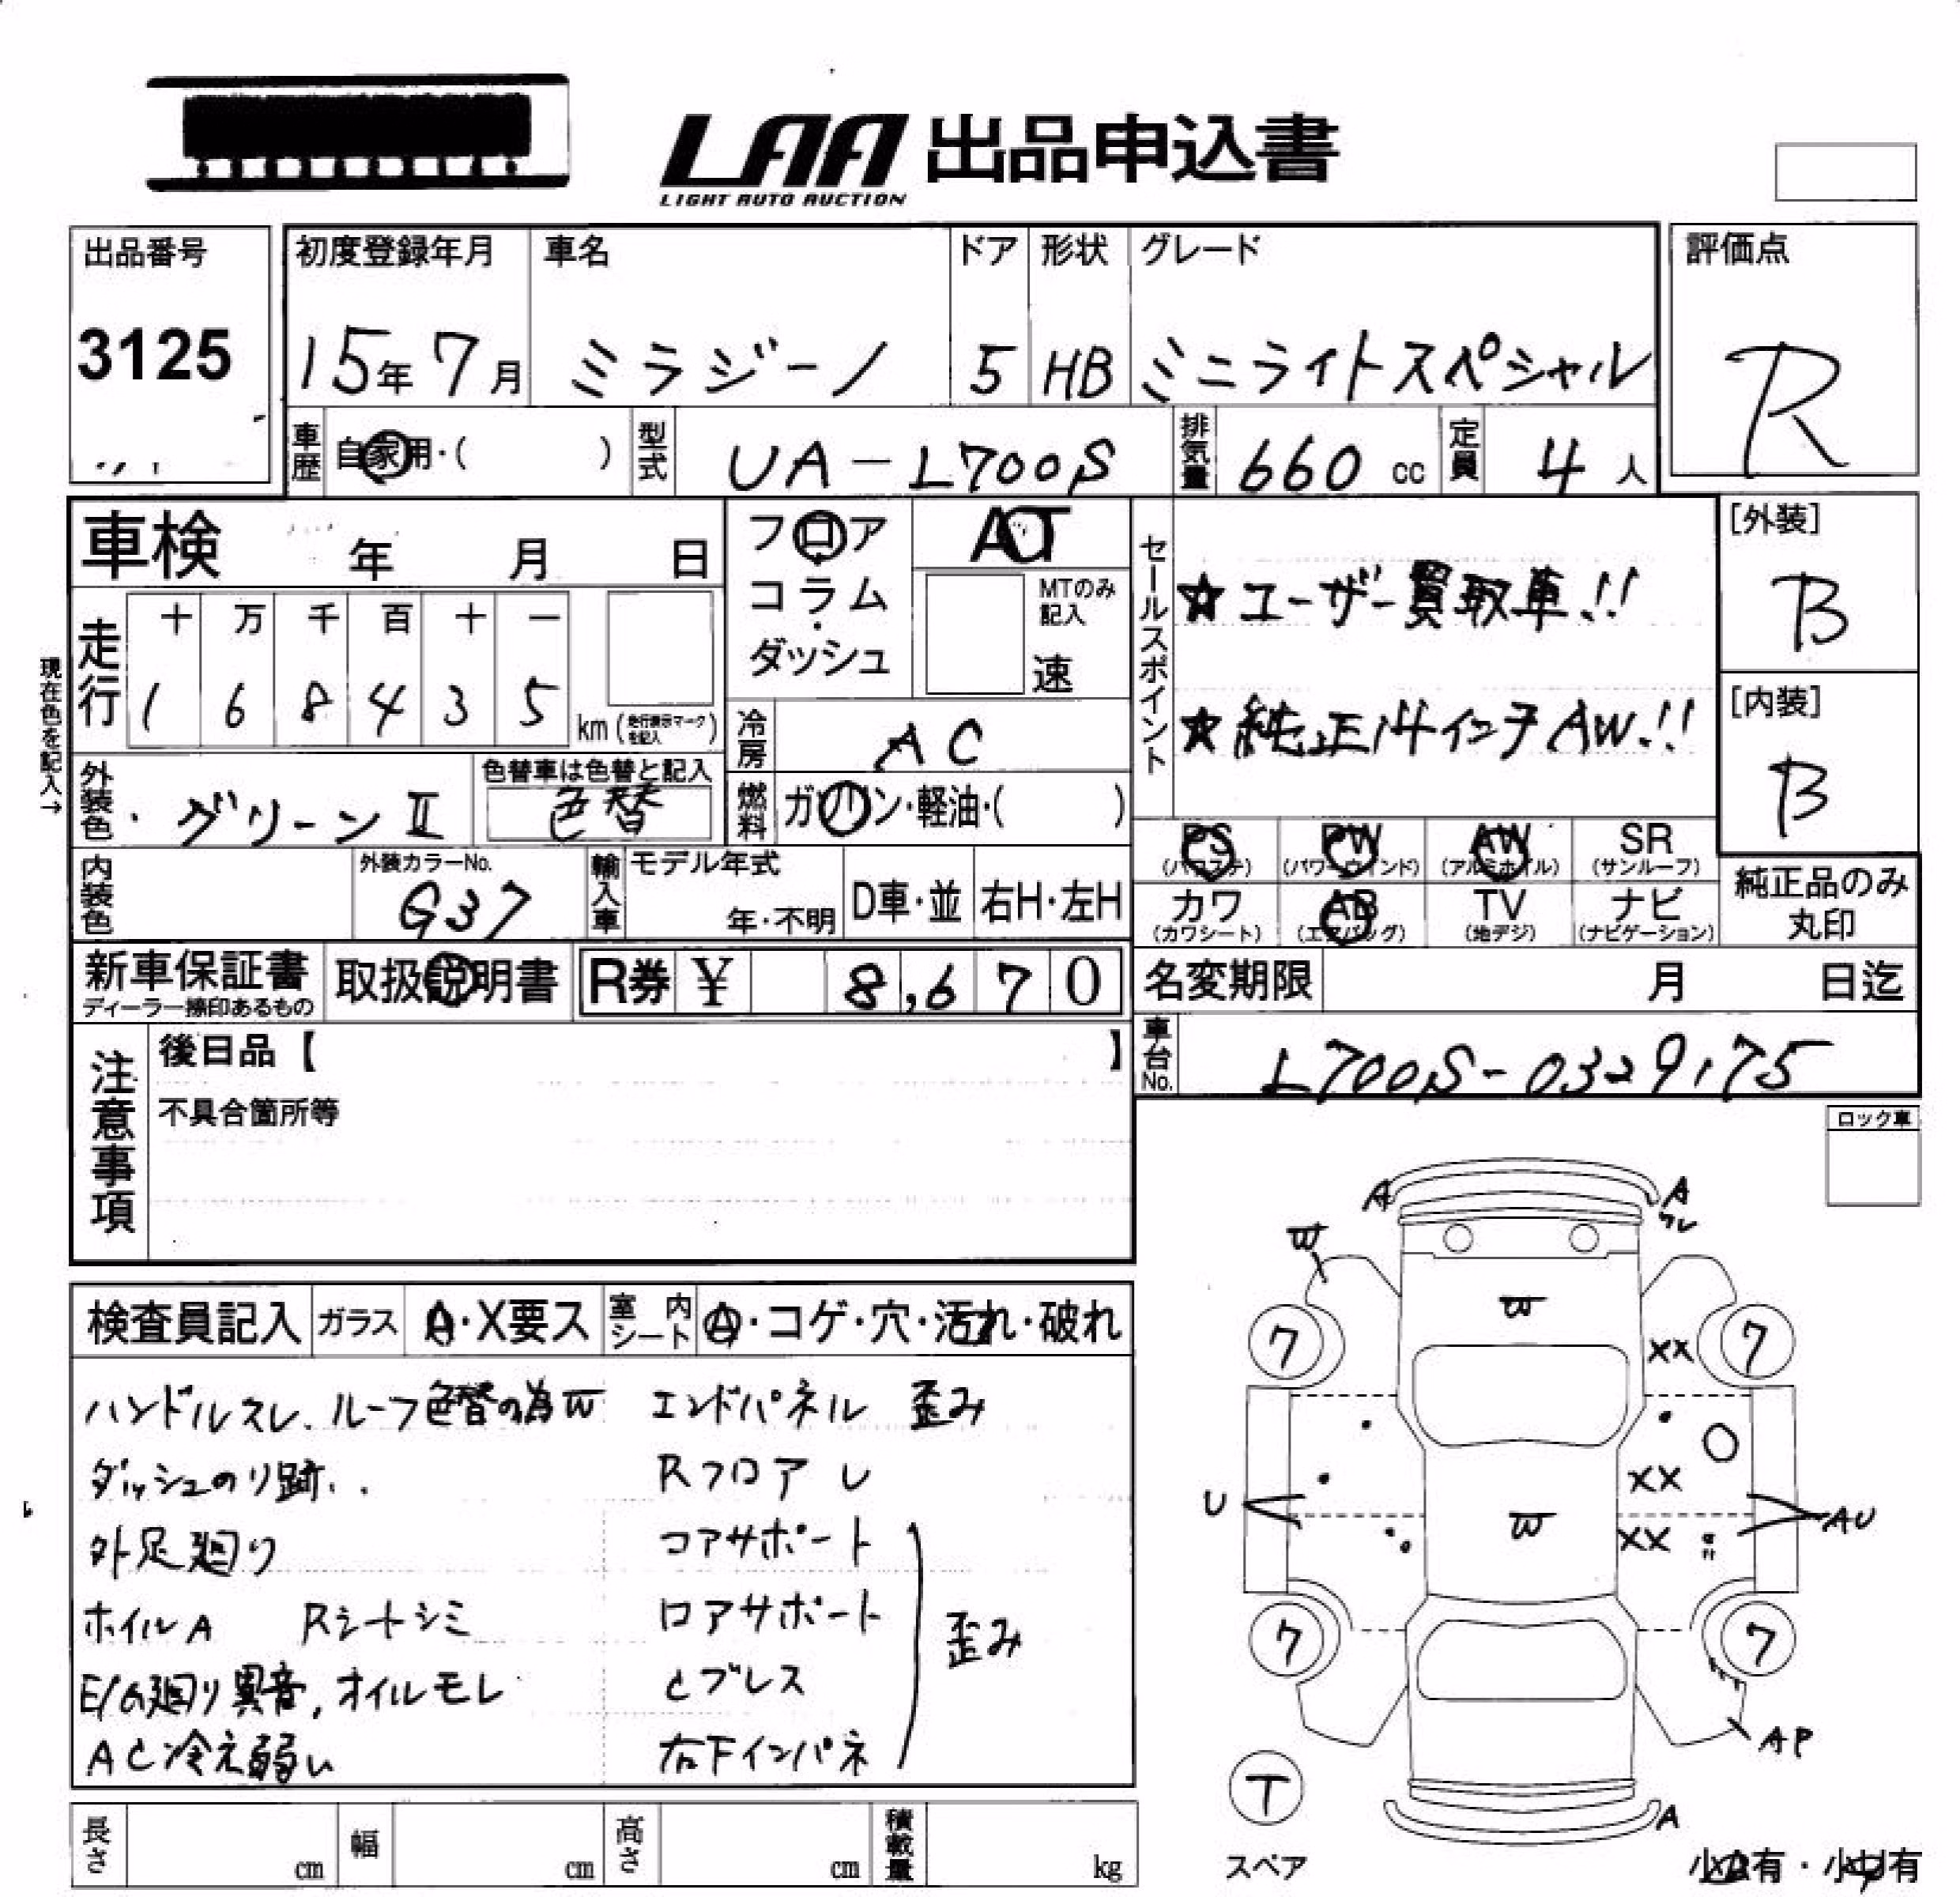 LAA 出品申込書
LIGHT AUTO AUCTION
出品番号
3125
初度登録年月
15年7月
車名
ミラジーノ
ドア
5
形状
HB
グレード
ミニライトスペシャル
評価点
R
車歴
自家用・( )
型式
UA-L700S
排気量
660 cc
定員
4 人
車検 年 月 日
フロア
コラム
ダッシュ
AT
MTのみ記入
速
セールスポイント
☆ユーザー買取車!!
☆純正14インチAW!!
[外装]
B
[内装]
B
現在色を記入→
走行
十 万 千 百 十 一
1 6 8 4 3 5
km(走行表示マークを記入)
冷房
AC
外装色
・グリーンⅡ
色替車は色替と記入
色替
燃料
ガソリン・軽油・( )
PS (パワステ)
PW (パワーウインド)
AW (アルミホイル)
SR (サンルーフ)
カワ (カワシート)
AB (エアバッグ)
TV (地デジ)
ナビ (ナビゲーション)
純正品のみ丸印
内装色
外装カラーNo.
G37
輸入車
モデル年式
年・不明
D車・並
右H・左H
新車保証書
ディーラー捺印あるもの
取扱説明書
R券 ¥ 8,670
名変期限 月 日迄
車台No.
L700S-0329175
注意事項
後日品【 】
不具合箇所等
ロック車
検査員記入
ガラス
A・X要ス
室内シート
A・コゲ・穴・汚れ・破れ
ハンドルスレ、ルーフ色替の為W
ダッシュのり跡..
外足廻り
ホイルA Rシートシミ
E/G廻り異音,オイルモレ
AC冷え弱い
エンドパネル 歪み
Rフロア
コアサポート
ロアサポート
とブレス
右下インパネ
歪み
A
A
スレ
W
W
7
XX
7
XX
U
W
XX
AU
7
7
AP
T
A
スペア
長さ cm
幅 cm
高さ cm
積載量 kg